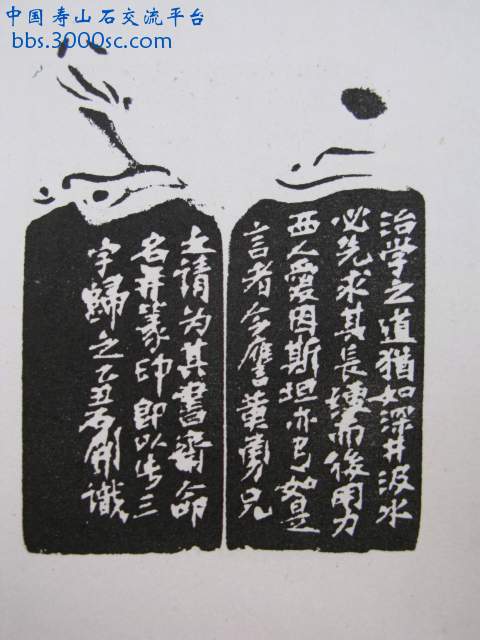 中国寿山石交流平台
bbs.3000sc.com
治学之道猶如深井汲水
必先求其長綆而後用力
西人愛因斯坦亦有如是
言者今應黄勇兄
之請为其書齋命
名并篆印即以此三
字歸之乙丑石開識